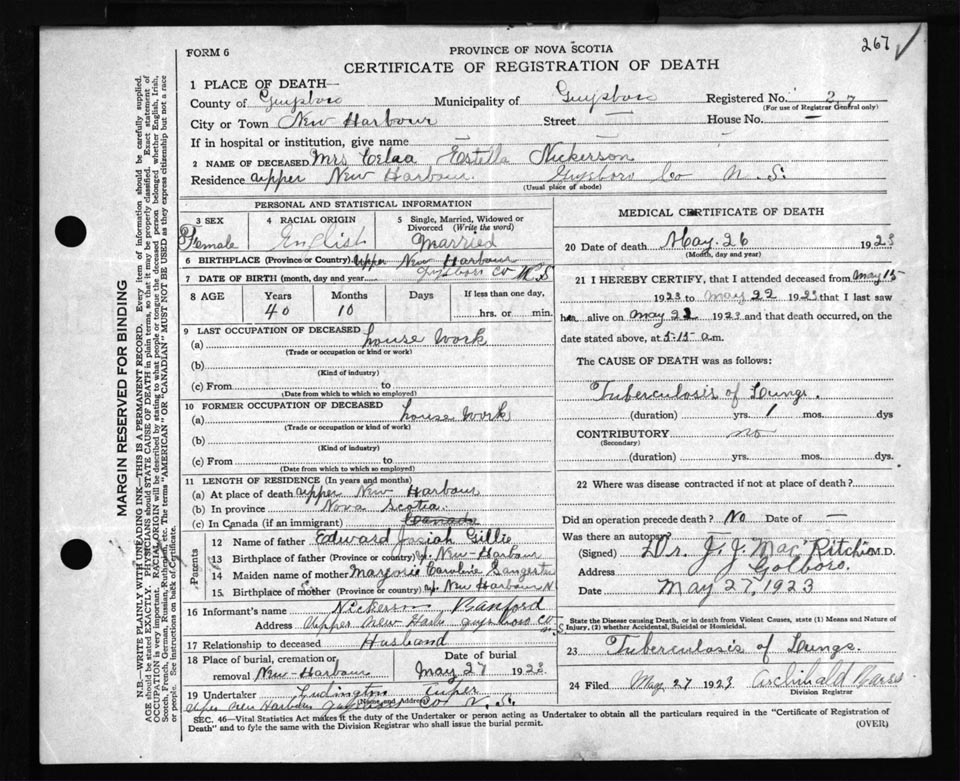 267 ✓
FORM 6
PROVINCE OF NOVA SCOTIA
CERTIFICATE OF REGISTRATION OF DEATH
MARGIN RESERVED FOR BINDING
N.B.—WRITE PLAINLY WITH UNFADING INK—THIS IS A PERMANENT RECORD. Every item of information should be carefully supplied.
AGE should be stated EXACTLY. PHYSICIANS should STATE CAUSE OF DEATH in plain terms, so that it may be properly classified. Exact statement of
OCCUPATION is very important. RACIAL ORIGIN will be described by stating to what people or tongue the deceased person belonged whether English, Irish,
Scotch, French, German, Russian, Ruthenian, etc. The terms "AMERICAN" OR "CANADIAN" MUST NOT BE USED as they express citizenship but not a race
or people. See instructions on back of Certificate.
1 PLACE OF DEATH—
County of Guysboro Municipality of Guysboro Registered No. 27
(For use of Registrar General only)
City or Town New Harbour Street — House No. —
If in hospital or institution, give name —
2 NAME OF DECEASED Mrs Estella Nickerson
Residence upper New Harbour Guysboro Co N. S.
(Usual place of abode)
PERSONAL AND STATISTICAL INFORMATION
3 SEX 4 RACIAL ORIGIN 5 Single, Married, Widowed or Divorced (Write the word)
Female English Married
6 BIRTHPLACE (Province or Country) Upper New Harbour
Guysboro Co N.S
7 DATE OF BIRTH (month, day and year)
8 AGE Years Months Days If less than one day,
40 10 hrs. or min.
9 LAST OCCUPATION OF DECEASED
(a) house work
(Trade or occupation or kind or work)
(b)
(Kind of industry)
(c) From to
(Date from which to which so employed)
10 FORMER OCCUPATION OF DECEASED
(a) house work
(Trade or occupation or kind of work)
(b)
(Kind of industry)
(c) From to
(Date from which to which so employed)
11 LENGTH OF RESIDENCE (In years and months)
(a) At place of death upper New Harbour
(b) In province Nova Scotia
(c) In Canada (if an immigrant) Canada
Parents
12 Name of father Edward Josiah Gillie
13 Birthplace of father (Province or country) New-Harbour
14 Maiden name of mother Marjorie Caroline
15. Birthplace of mother (Province or country) New Harbour N.
16 Informant's name Nickerson Banford
Address Upper New Harbr Guysboro Co N.S
17 Relationship to deceased Husband
18 Place of burial, cremation or removal New-Harbour Date of burial May 27 1923
19 Undertaker Ludington
(Name and Address)
Upper New Harbour Guysboro Co N. S.
MEDICAL CERTIFICATE OF DEATH
20 Date of death May. 26 1923
(Month, day and year)
21 I HEREBY CERTIFY, that I attended deceased from May 15
1923 to May 22 1923 that I last saw
her alive on May 22 1923 and that death occurred, on the
date stated above, at 5.15 a.m.
The CAUSE OF DEATH was as follows:
Tuberculosis of Lungs.
(duration) yrs. 1 mos. dys
CONTRIBUTORY no
(Secondary)
(duration) yrs. mos. dys.
22 Where was disease contracted if not at place of death?
Did an operation precede death? No Date of —
Was there an autopsy?
(Signed) Dr. J. J. MacRitchie M.D.
Address Golboro.
Date May 27, 1923
State the Disease causing Death, or in death from Violent Causes, state (1) Means and Nature of
Injury, (2) whether Accidental, Suicidal or Homicidal.
23 Tuberculosis of Lungs.
24 Filed May 27 1923 Archibald
Division Registrar
SEC. 46—Vital Statistics Act makes it the duty of the Undertaker or person acting as Undertaker to obtain all the particulars required in the "Certificate of Registration of
Death" and to fyle the same with the Division Registrar who shall issue the burial permit. (OVER)